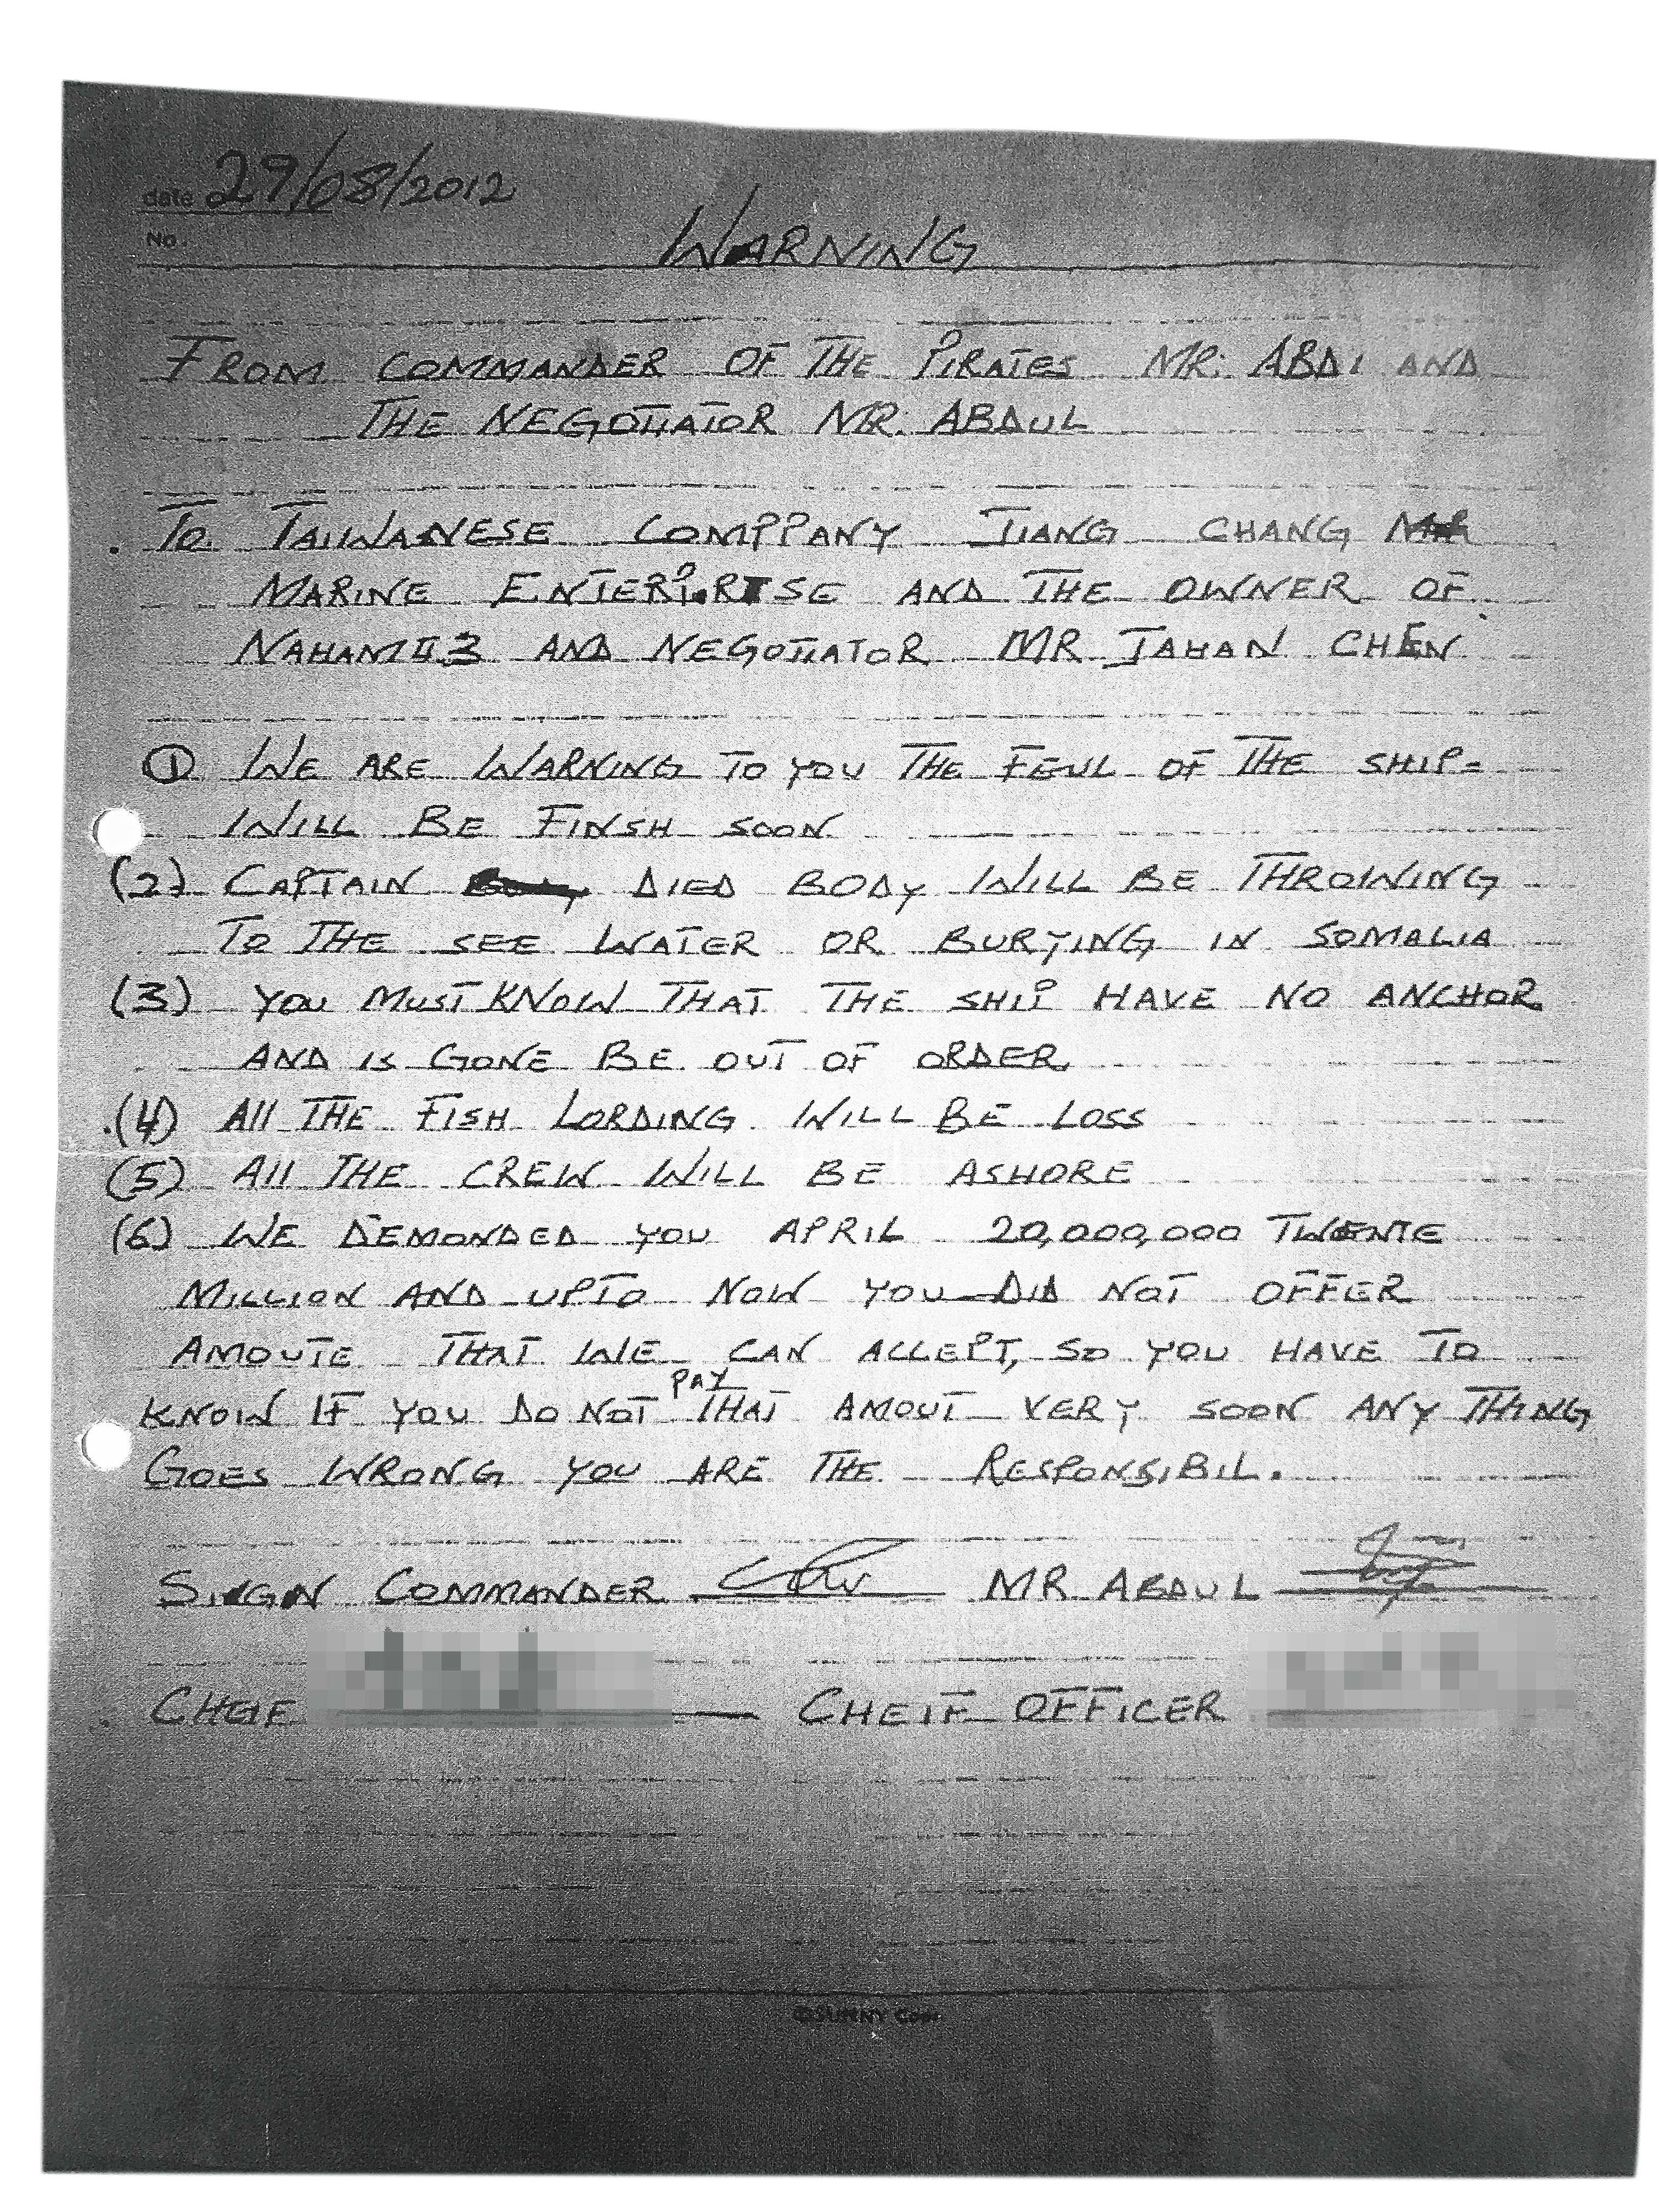 date 29/08/2012
No.
WARNING
FROM COMMANDER OF THE PIRATES MR. ABDI AND
THE NEGOTIATOR MR. ABDUL
TO TAIWANESE COMPPANY JIANG CHANG
MARINE ENTERPRISE AND THE OWNER OF
NAHAM#3 AND NEGOTIATOR MR JAHAN CHEN
① WE ARE WARNING TO YOU THE FEUL OF THE SHIP-
WILL BE FINSH SOON
(2) CAPTAIN DIED BODY WILL BE THROWING
TO THE SEE WATER OR BURYING IN SOMALIA
(3) YOU MUST KNOW THAT THE SHIP HAVE NO ANCHOR
AND IS GONE BE OUT OF ORDER
(4) All THE FISH LORDING WILL BE LOSS
(5) All THE CREW WILL BE ASHORE
(6) WE DEMONDED YOU APRIL 20,000,000 TWENTE
MILLION AND UPTO NOW YOU DID NOT OFFER
AMOUTE THAT WE CAN ACCEPT, SO YOU HAVE TO
KNOW IF YOU DO NOT PAY THAT AMOUT VERY SOON ANY THING
GOES WRONG YOU ARE THE RESPONSIBIL.
SIGN COMMANDER MR ABDUL
CHEIF OFFICER
©SUNNY